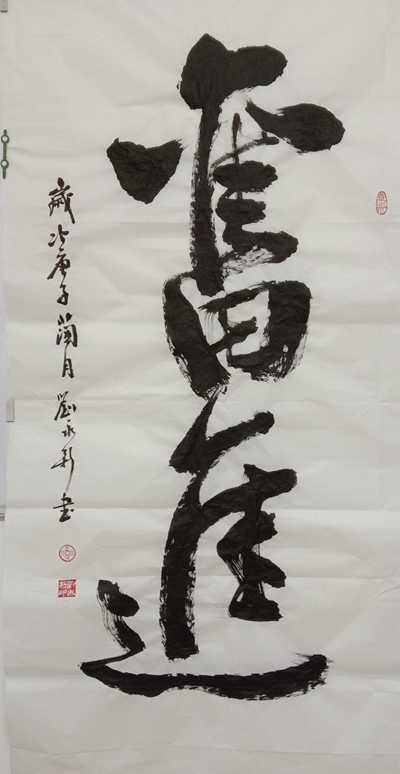 奮進
歲次庚子蘭月劉永彩書